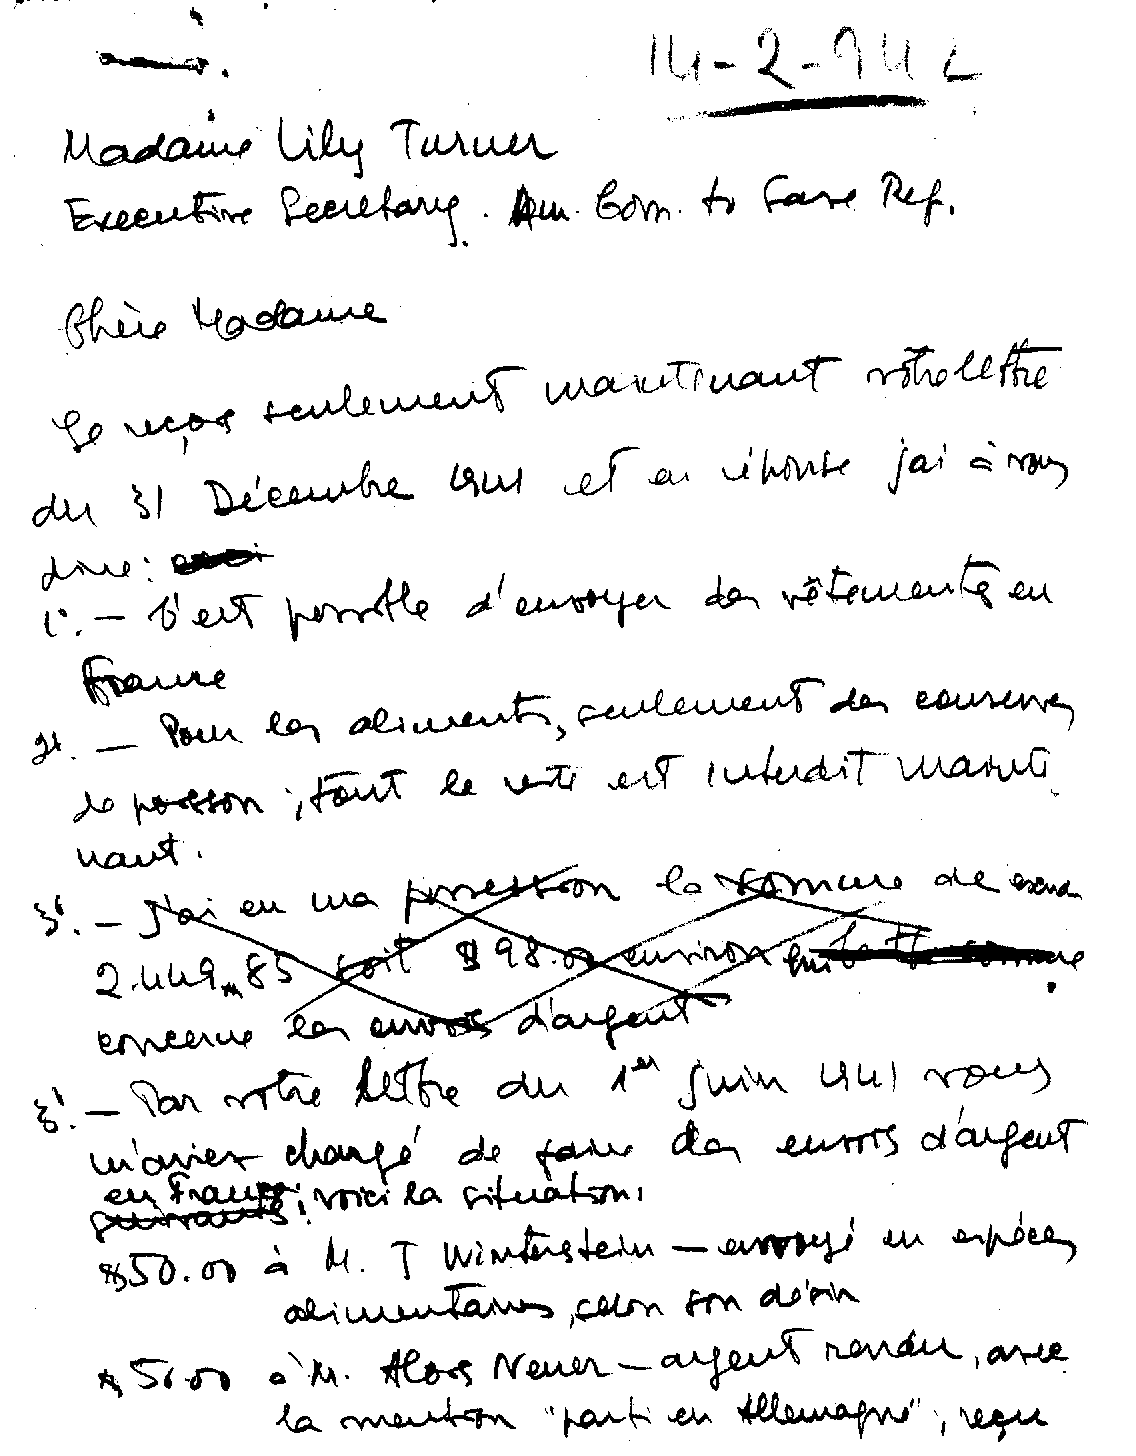 14-2-942
Madame Lily Turner
Executive Secretary. Am. Com. to Save Ref.
Chère Madame
Je reçois seulement maintenant votre lettre
du 31 Décembre 1941 et en réponse j'ai à vous
dire:
1°. — C'est possible d'envoyer des vêtements en
France
2°. — Pour les aliments, seulement des conserves
de poisson; tout le reste est interdit mainte
nant.
3°. — J'ai en ma possession la somme de
2.449,85 soit $ 98.00 environ qui
concerne les envois d'argent
3°. — Par votre lettre du 1er Juin 1941 vous
m'aviez chargé de faire des envois d'argent
en France; voici la situation:
$50.00 à M. J Winterstein — envoyé en espèces
alimentaires, selon son désir
$50.00 à M. Alois Neuer — argent rendu, avec
la mention "parti en Allemagne", reçu